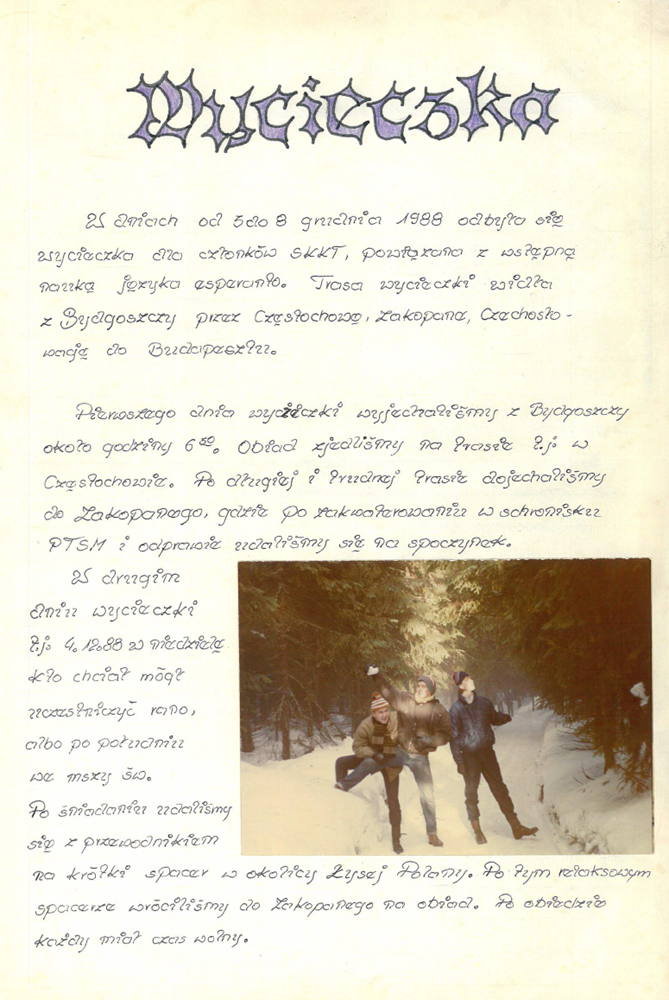 Wycieczka
W dniach od 3 do 8 grudnia 1988 odbyła się
wycieczka dla członków SKKT, powiązana z wstępną
nauką języka esperanto. Trasa wycieczki wiodła
z Bydgoszczy przez Częstochowę, Zakopane, Czechosło-
wację do Budapesztu.
Pierwszego dnia wycieczki wyjechaliśmy z Bydgoszczy
około godziny 6⁵⁰. Obiad zjedliśmy na trasie t.j. w
Częstochowie. Po długiej i trudnej trasie dojechaliśmy
do Zakopanego, gdzie po zakwaterowaniu w schronisku
PTSM i odprawie udaliśmy się na spoczynek.
W drugim
dniu wycieczki
t.j. 4.12.88 w niedzielę
kto chciał mógł
uczestniczyć rano,
albo po południu
we mszy św.
Po śniadaniu udaliśmy
się z przewodnikiem
na krótki spacer w okolicy Łysej Polany. Po tym relaksowym
spacerze wróciliśmy do Zakopanego na obiad. Po obiedzie
każdy miał czas wolny.